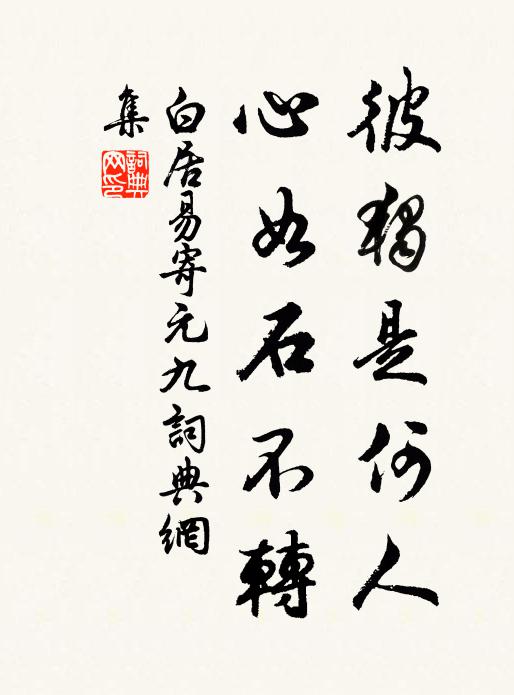 彼獨是何人
心如石不轉
白居易寄元九詞典網
集
詞典
网印